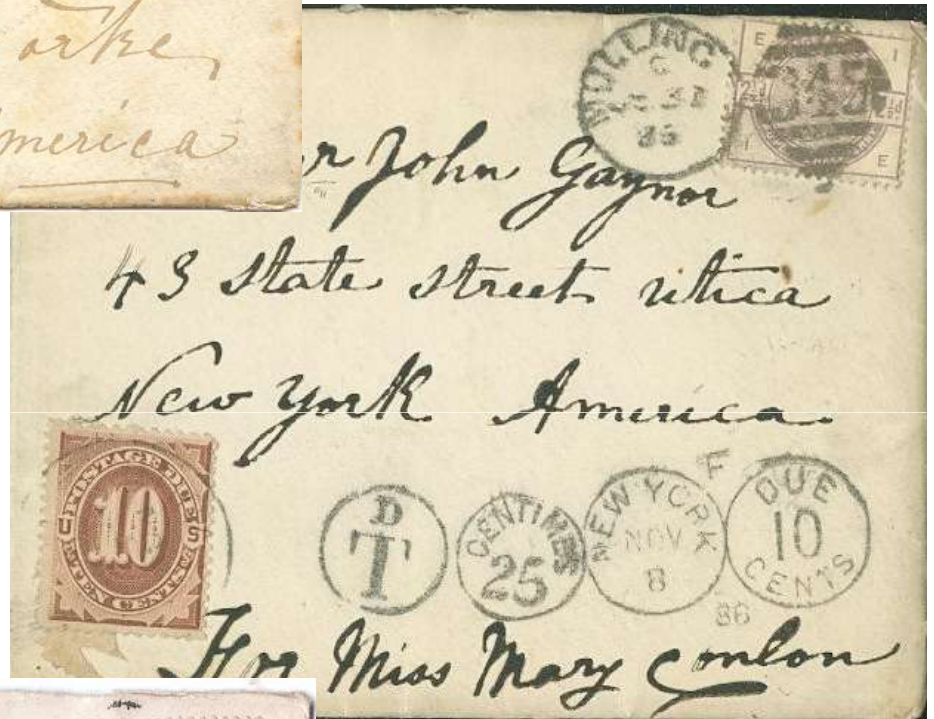 orke
merica
MULLING
C
3
86
E
I
2½d
2½d
I
E
John Gaynor
43 State Street utica
New York America
POSTAGE DUE
U
S
10
TEN CENTS
D
T
CENTIMES
25
NEW YORK
NOV
8
86
F
DUE
10
CENTS
For Miss Mary Conlon